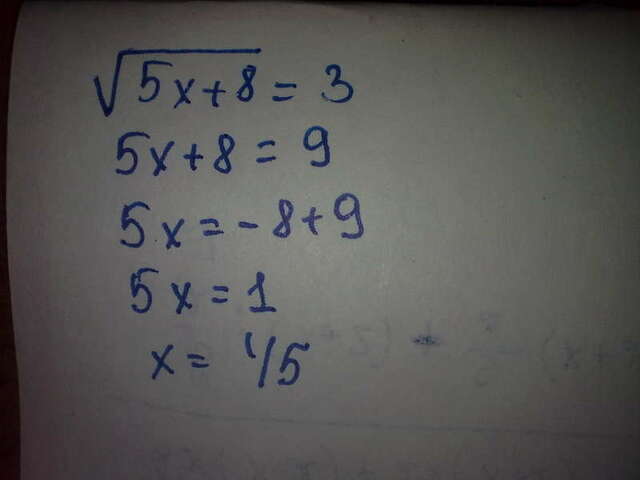 √5x+8 = 3
5x+8 = 9
5x = -8+9
5x = 1
x = 1/5